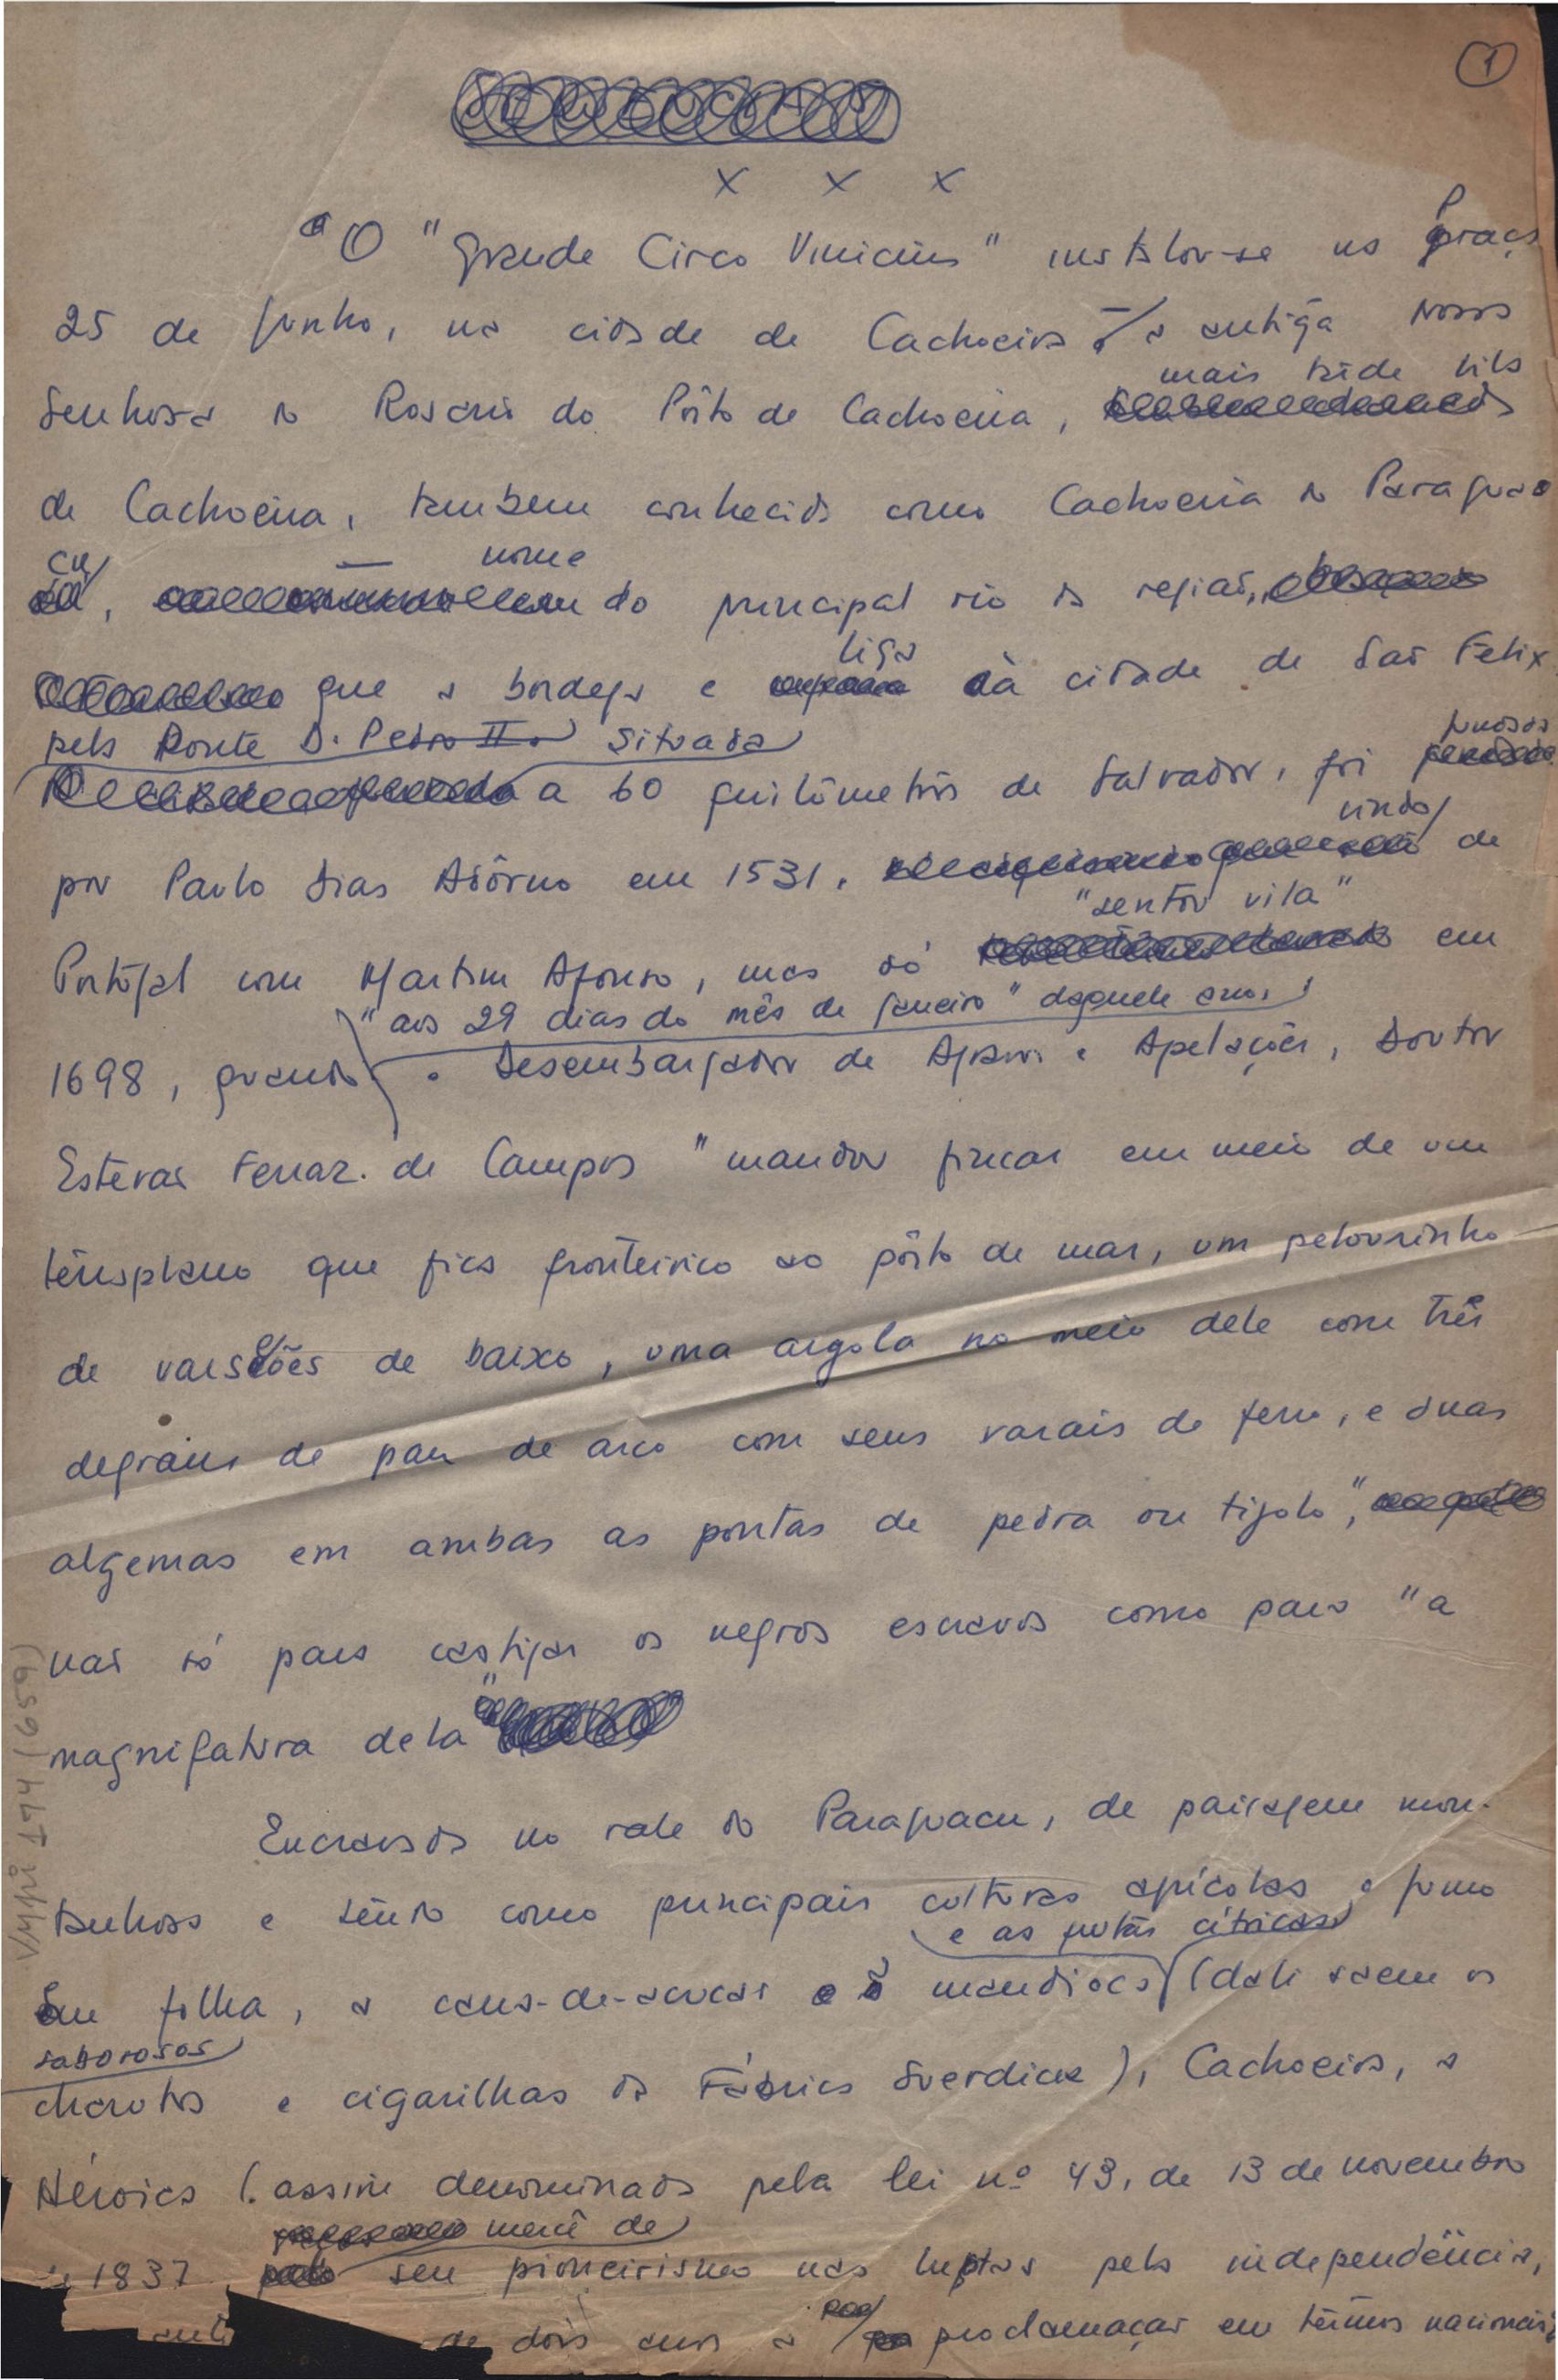 1
x x x
O "Grande Circo Vinicius" instalou-se na Praça
25 de Junho, na cidade de Cachoeira — a antiga Nossa
mais tarde Vila
Senhora do Rosário do Pôrto de Cachoeira,
de Cachoeira, também conhecida como Cachoeira do Paragua
çu, nome do principal rio da região,
que a bordeja e liga à cidade de São Felix
pela Ponte D. Pedro II. Situada
a 60 quilômetros de Salvador, foi fundada
por Paulo Dias Adôrno em 1531, vindo de
"sentou vila"
Portugal com Martim Afonso, mas só em
"aos 29 dias do mês de Janeiro" daquele ano,
1698, quando o Desembargador de Agravos e Apelações, Doutor
Estevão Ferraz de Campos "mandou fincar em meio de um
terraplano que fica fronteiriço ao pôrto de mar, um pelourinho
de varações de baixo, uma argola no meio dele com três
degraus de pau de arco com seus varais de ferro, e duas
algemas em ambas as pontas de pedra ou tijolo",
não só para castigar os negros escravos como para "a
magnifatura dela"
Encravada no vale do Paraguaçu, de paisagem mon-
tanhosa e tendo como principais culturas agrícolas o fumo
e as frutas cítricas
em folha, a cana-de-açucar a mandioca (dali saem os
saborosos
charutos e cigarilhas da Fábrica Suerdick), Cachoeira, a
Heróica (assim denominada pela lei nº 43, de 13 de novembro
mercê de
de 1837 seu pioneirismo nas lutas pela independência,
de dois anos a proclamação em têrmos nacionais,
V4pi I 94 (659)